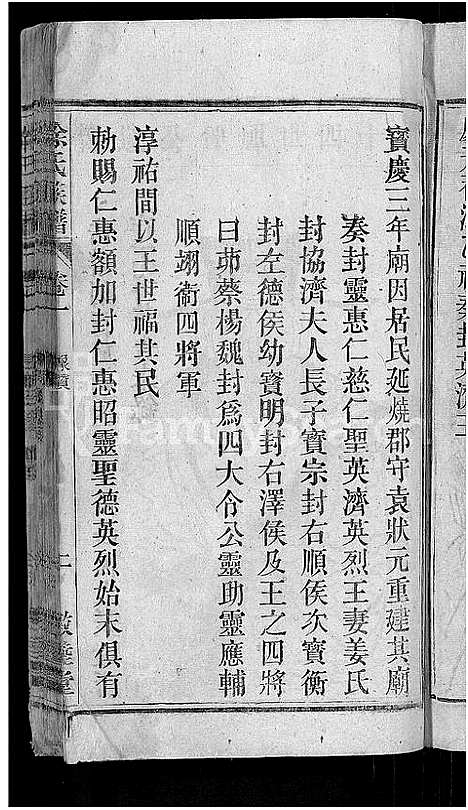 寶慶三年廟因居民延燒郡守袁狀元重建其廟
奏封靈惠仁慈仁聖英濟英烈王妻姜氏
封協濟夫人長子寶宗封右順侯次寶衡
封左德侯幼寶明封右澤侯及王之四將
曰茆蔡楊魏封爲四大令公靈助靈應輔
順翊衛四將軍
淳祐間以王世福其民
勅賜仁惠額加封仁惠昭靈聖德英烈始末俱有
徐氏族譜
卷一
二